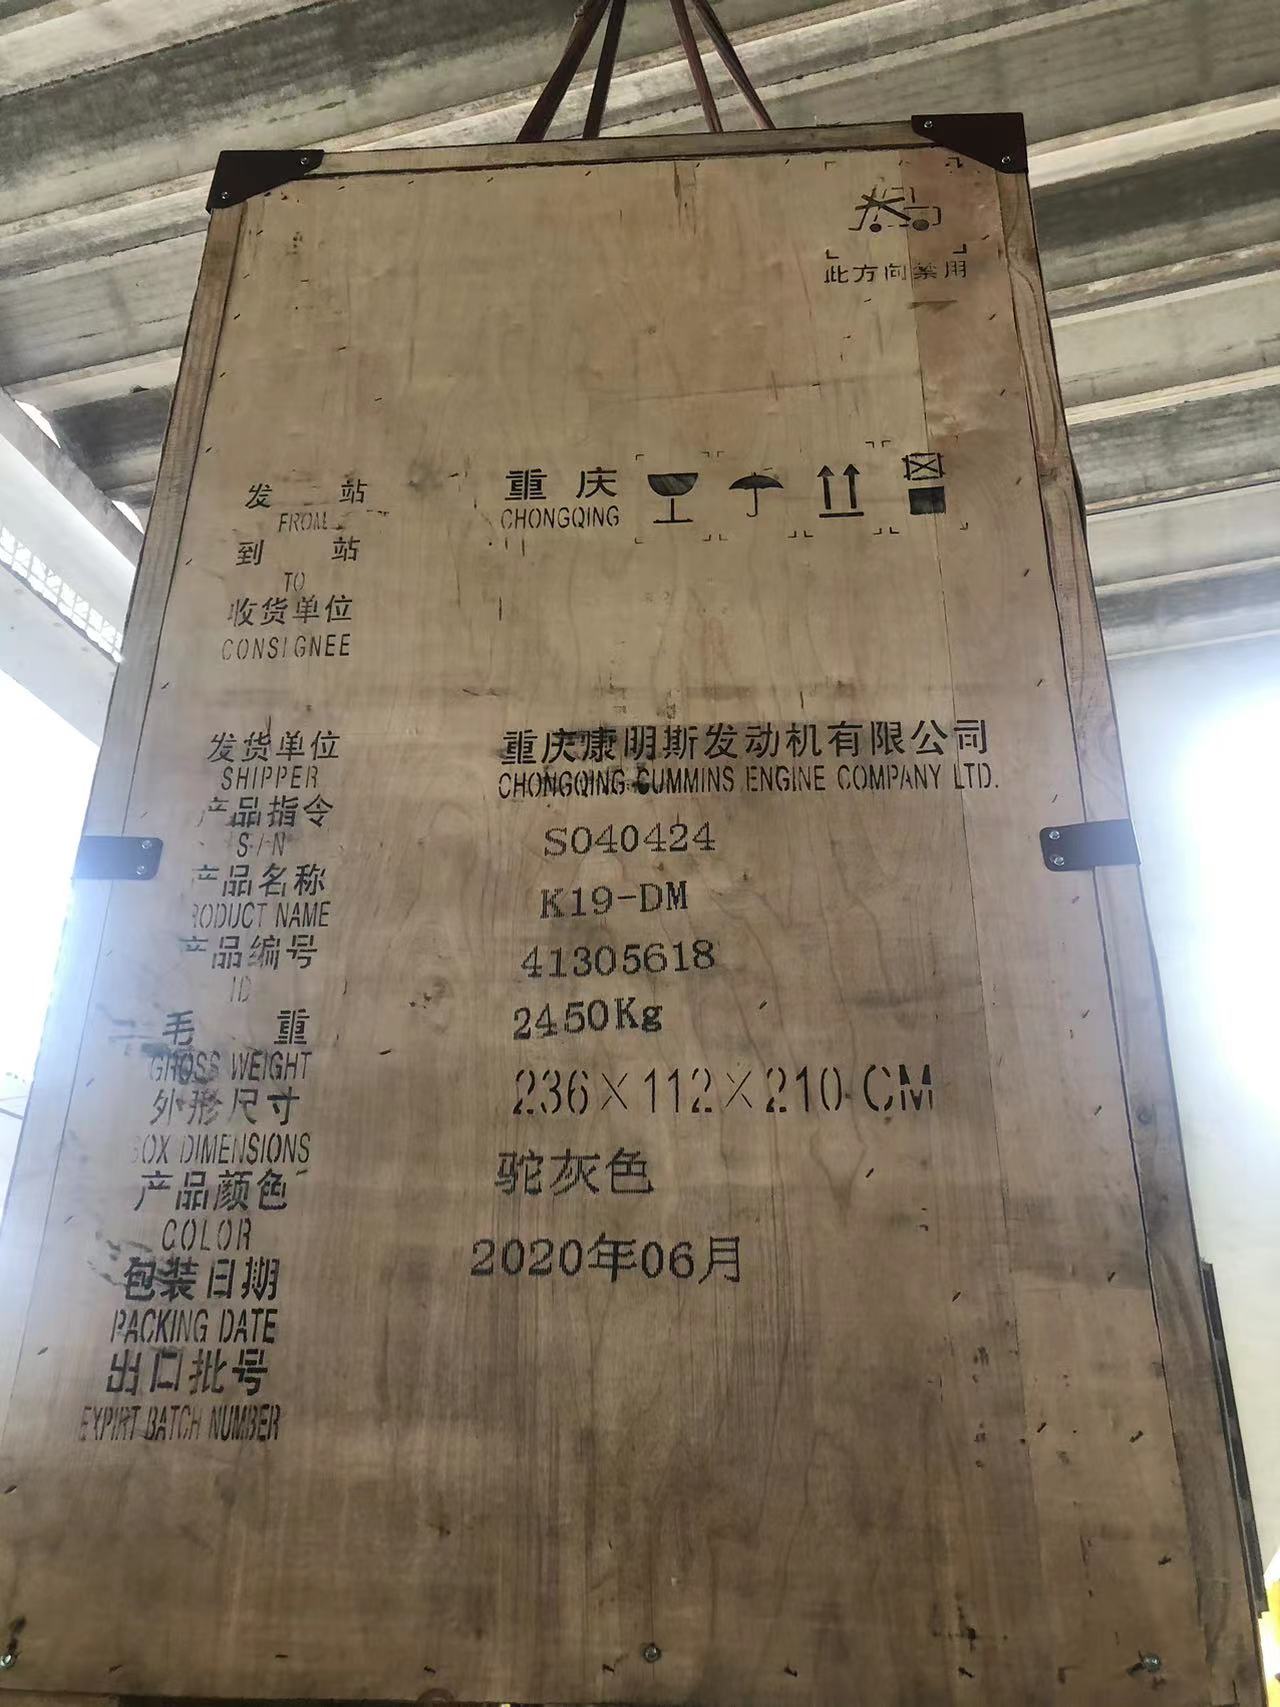 此方向禁用
发 站 重庆
FROM CHONGQING
到 站
TO
收货单位
CONSIGNEE
发货单位 重庆康明斯发动机有限公司
SHIPPER CHONGQING CUMMINS ENGINE COMPANY LTD.
产品指令
S/N SO40424
产品名称 K19-DM
RODUCT NAME
产品编号 41305618
ID
毛 重 2450Kg
GROSS WEIGHT
外形尺寸 236×112×210 CM
BOX DIMENSIONS
产品颜色 驼灰色
COLOR
包装日期 2020年06月
PACKING DATE
出口批号
EXPIRT BATCH NUMBER